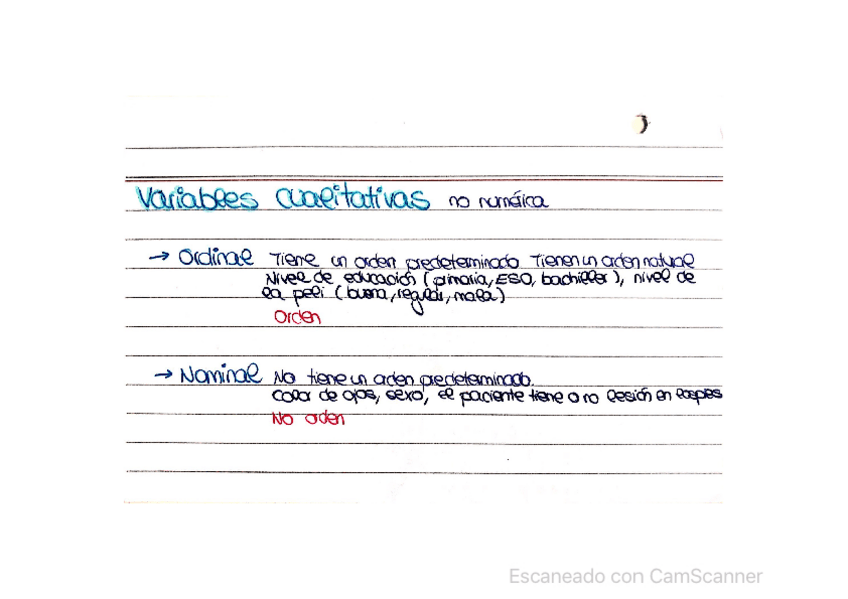 Variables cualitativas no numérica
→ Ordinal Tiene un orden predeterminado Tienen un orden natural
Nivel de educación (primaria, ESO, bachiller), nivel de
la peli (buena, regular, mala)
Orden
→ Nominal No tiene un orden predeterminado.
Color de ojos, sexo, el paciente tiene o no lesión en los pies
No orden
Escaneado con CamScanner